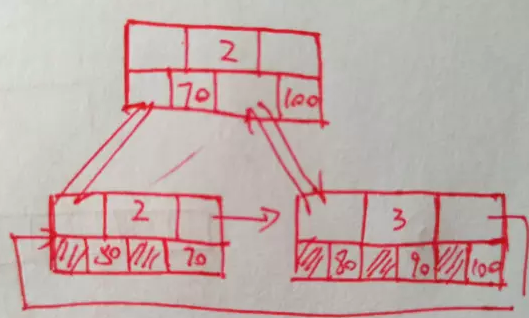 2
70 100
2 3
50 70 80 90 100